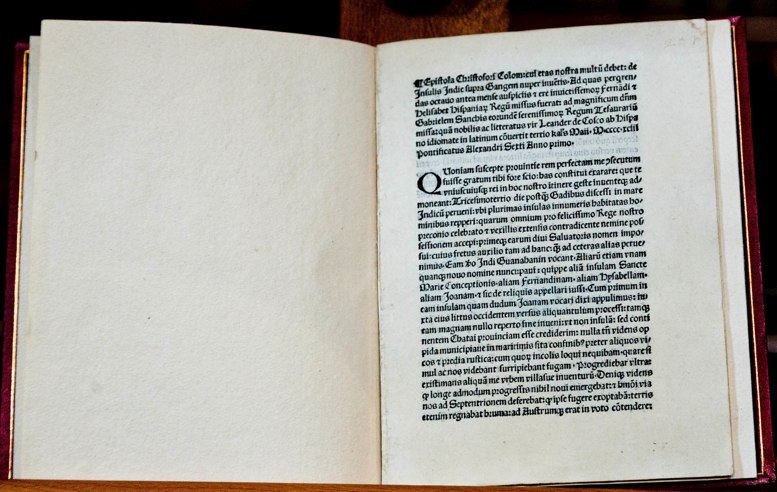 ¶Epistola Christofori Colom: cui etas nostra multū debet: de
Insulis Indie supra Gangem nuper inuētis. Ad quas perqren-
das octauo antea mense auspiciis ⁊ ere inuictissemoꝝ Fernādi ⁊
Helisabet Hispaniaꝝ Regū missus fuerat: ad magnificum dn̄m
Gabrielem Sanchis eorundē serenissimoꝝ Regum Tesaurariū
missa: quā nobilis ac litteratus vir Leander de Cosco ab Hispa
no idiomate in latinum cōuertit tertio kal's Maii. M.cccc.xciii
Pontificatus Alexandri Sexti Anno primo.
Quoniam suscepte prouintie rem perfectam me ↄsecutum
fuisse gratum tibi fore scio: has constitui exarare: que te
vniuscuiusqꝫ rei in hoc nostro itinere geste inuenteqꝫ ad-
moneant: Tricesimotertio die postqꝫ Gadibus discessi in mare
Indicū perueni: vbi plurimas insulas innumeris habitatas ho-
minibus repperi: quarum omnium pro felicissimo Rege nostro
preconio celebrato ⁊ vexillis extensis contradicente nemine pos-
sessionem accepi: primeqꝫ earum diui Saluatoris nomen impo-
sui: cuius fretus auxilio tam ad hanc qꝫ ad ceteras alias perue-
nimus. Eam ꝟo Indi Guanahanin vocant. Aliarū etiam vnam
quanqꝫ nouo nomine nuncupaui: quippe aliā insulam Sancte
Marie Conceptionis. aliam Fernandinam. aliam Hysabellam.
aliam Joanam. ⁊ sic de reliquis appellari iussi. Cum primum in
eam insulam quam dudum Joanam vocari dixi appulimus: iu
xta eius littus occidentem versus aliquantulum processi: tamqꝫ
eam magnam nullo reperto fine inueni: vt non insulā: sed conti
nentem Chatai prouinciam esse crediderim: nulla tn̄ videns op
pida municipiaue in maritimis sita confinibꝫ preter aliquos vi-
cos ⁊ predia rustica: cum quoꝝ incolis loqui nequibam. quare si
mul ac nos videbant surripiebant fugam. Progrediebar vltra:
existimans aliquā me vrbem villasue inuenturū. Deniqꝫ videns
ꝙ longe admodum progressis nihil noui emergebat: ⁊ hmōi via
nos ad Septentrionem deferebat: ꝙ ipse fugere exoptabā: terris
etenim regnabat bruma: ad Austrumqꝫ erat in voto cōtendere: